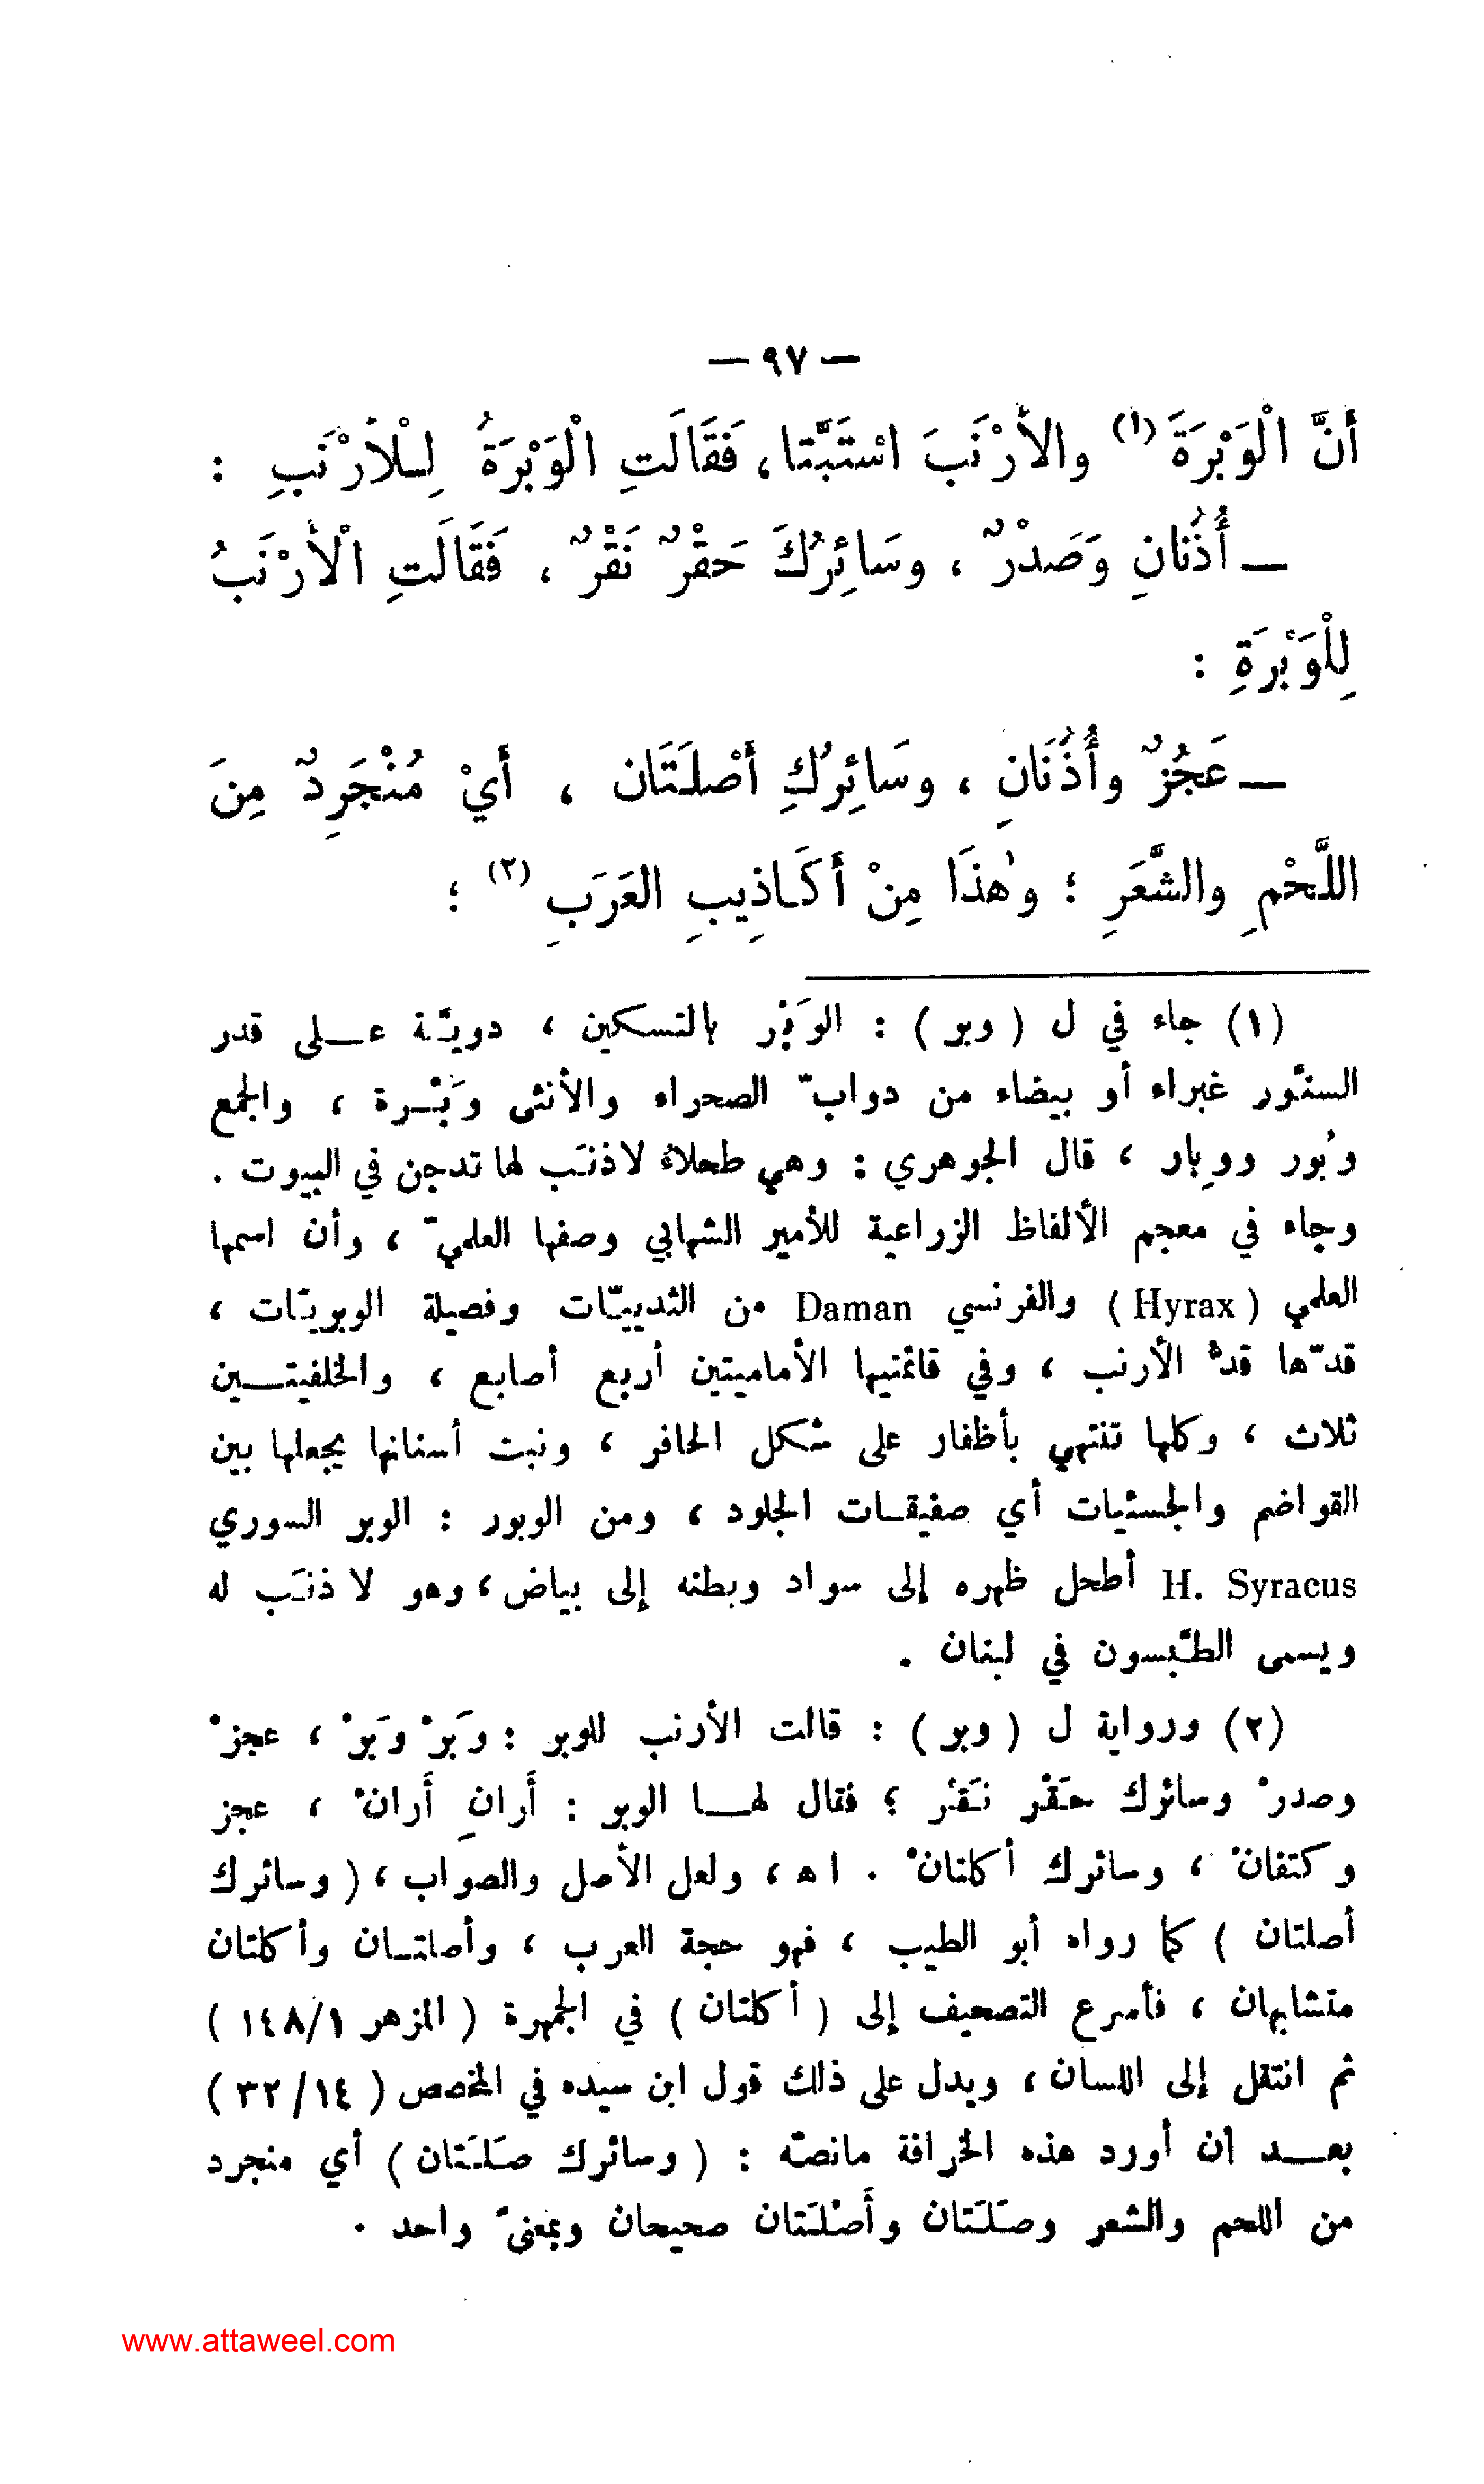 — ٩٧ —
أَنَّ الْوَبْرَةَ (١) والأَرْنَبَ اسْتَبَّتا، فَقَالَتِ الْوَبْرَةُ لِلْأَرْنَبِ :
— أُذُنانِ وَصَدْرٌ ، وسَائِرُكَ حَقْرٌ نَقْرٌ ، فَقَالَتِ الْأَرْنَبُ
لِلْوَبْرَةِ :
— عَجُزٌ وأُذُنَانِ ، وسَائِرُكِ أَصْلَتَان ، أَيْ مُنْجَرِدٌ مِنَ
اللَّحْمِ والشَّعَرِ ؛ وهٰذَا مِنْ أَكَاذِيبِ العَرَبِ (٢) ؛
(١) جاء في ل ( وبر ) : الوَبْر بالتسكين ، دويبَّة عــلى قدر
السنَّور غبراء أو بيضاء من دوابّ الصحراء والأنثى وَبْـرة ، والجمع
وُبُور ووِبار ، قال الجوهري : وهي طحلاءُ لا ذنَب لها تدجن في البيوت .
وجاء في معجم الألفاظ الزراعية للأمير الشهابي وصفها العلميّ ، وأن اسمها
العلمي ( Hyrax ) والفرنسي Daman من الثدييّات وفصيلة الوبريّات ،
قدّها قدُّ الأرنب ، وفي قائمتيها الأماميتين أربع أصابع ، والخلفيتــين
ثلاث ، وكلها تنتهي بأظفار على شكل الحافر ، ونبت أسنانها يجعلها بين
القواضم والجسئيات أي صفيقـات الجلود ، ومن الوبور : الوبر السوري
H. Syracus أطحل ظهره إلى سواد وبطنه إلى بياض، وهو لا ذنَب له
ويسمى الطَّبسون في لبنان .
(٢) ورواية ل ( وبر ) : قالت الأرنب للوبر : وَبَرْ وَبَرْ ، عجزْ
وصدرْ وسائرك حَقْر نَقْر ؛ فقال لهــا الوبر : أَرانِ أَرانْ ، عجز
وكتفانْ ، وسائرك أكلتانْ . اه ، ولعل الأصل والصواب ، ( وسائرك
أصلتان ) كما رواه أبو الطيب ، فهو حجة العرب ، وأصلتـان وأكلتان
متشابهان ، فأسرع التصحيف إلى ( أكلتان ) في الجمهرة ( المزهر ١٤٨/١ )
ثم انتقل إلى اللسان ، ويدل على ذلك قول ابن سيده في المخصص ( ٣٢/١٤ )
بعــد أن أورد هذه الخرافة مانصّه : ( وسائرك صَلَتَان ) أي منجرد
من اللحم والشعر وصَلَتَان وأَصْلَتَان صحيحان وبمعنىً واحد .
www.attaweel.com